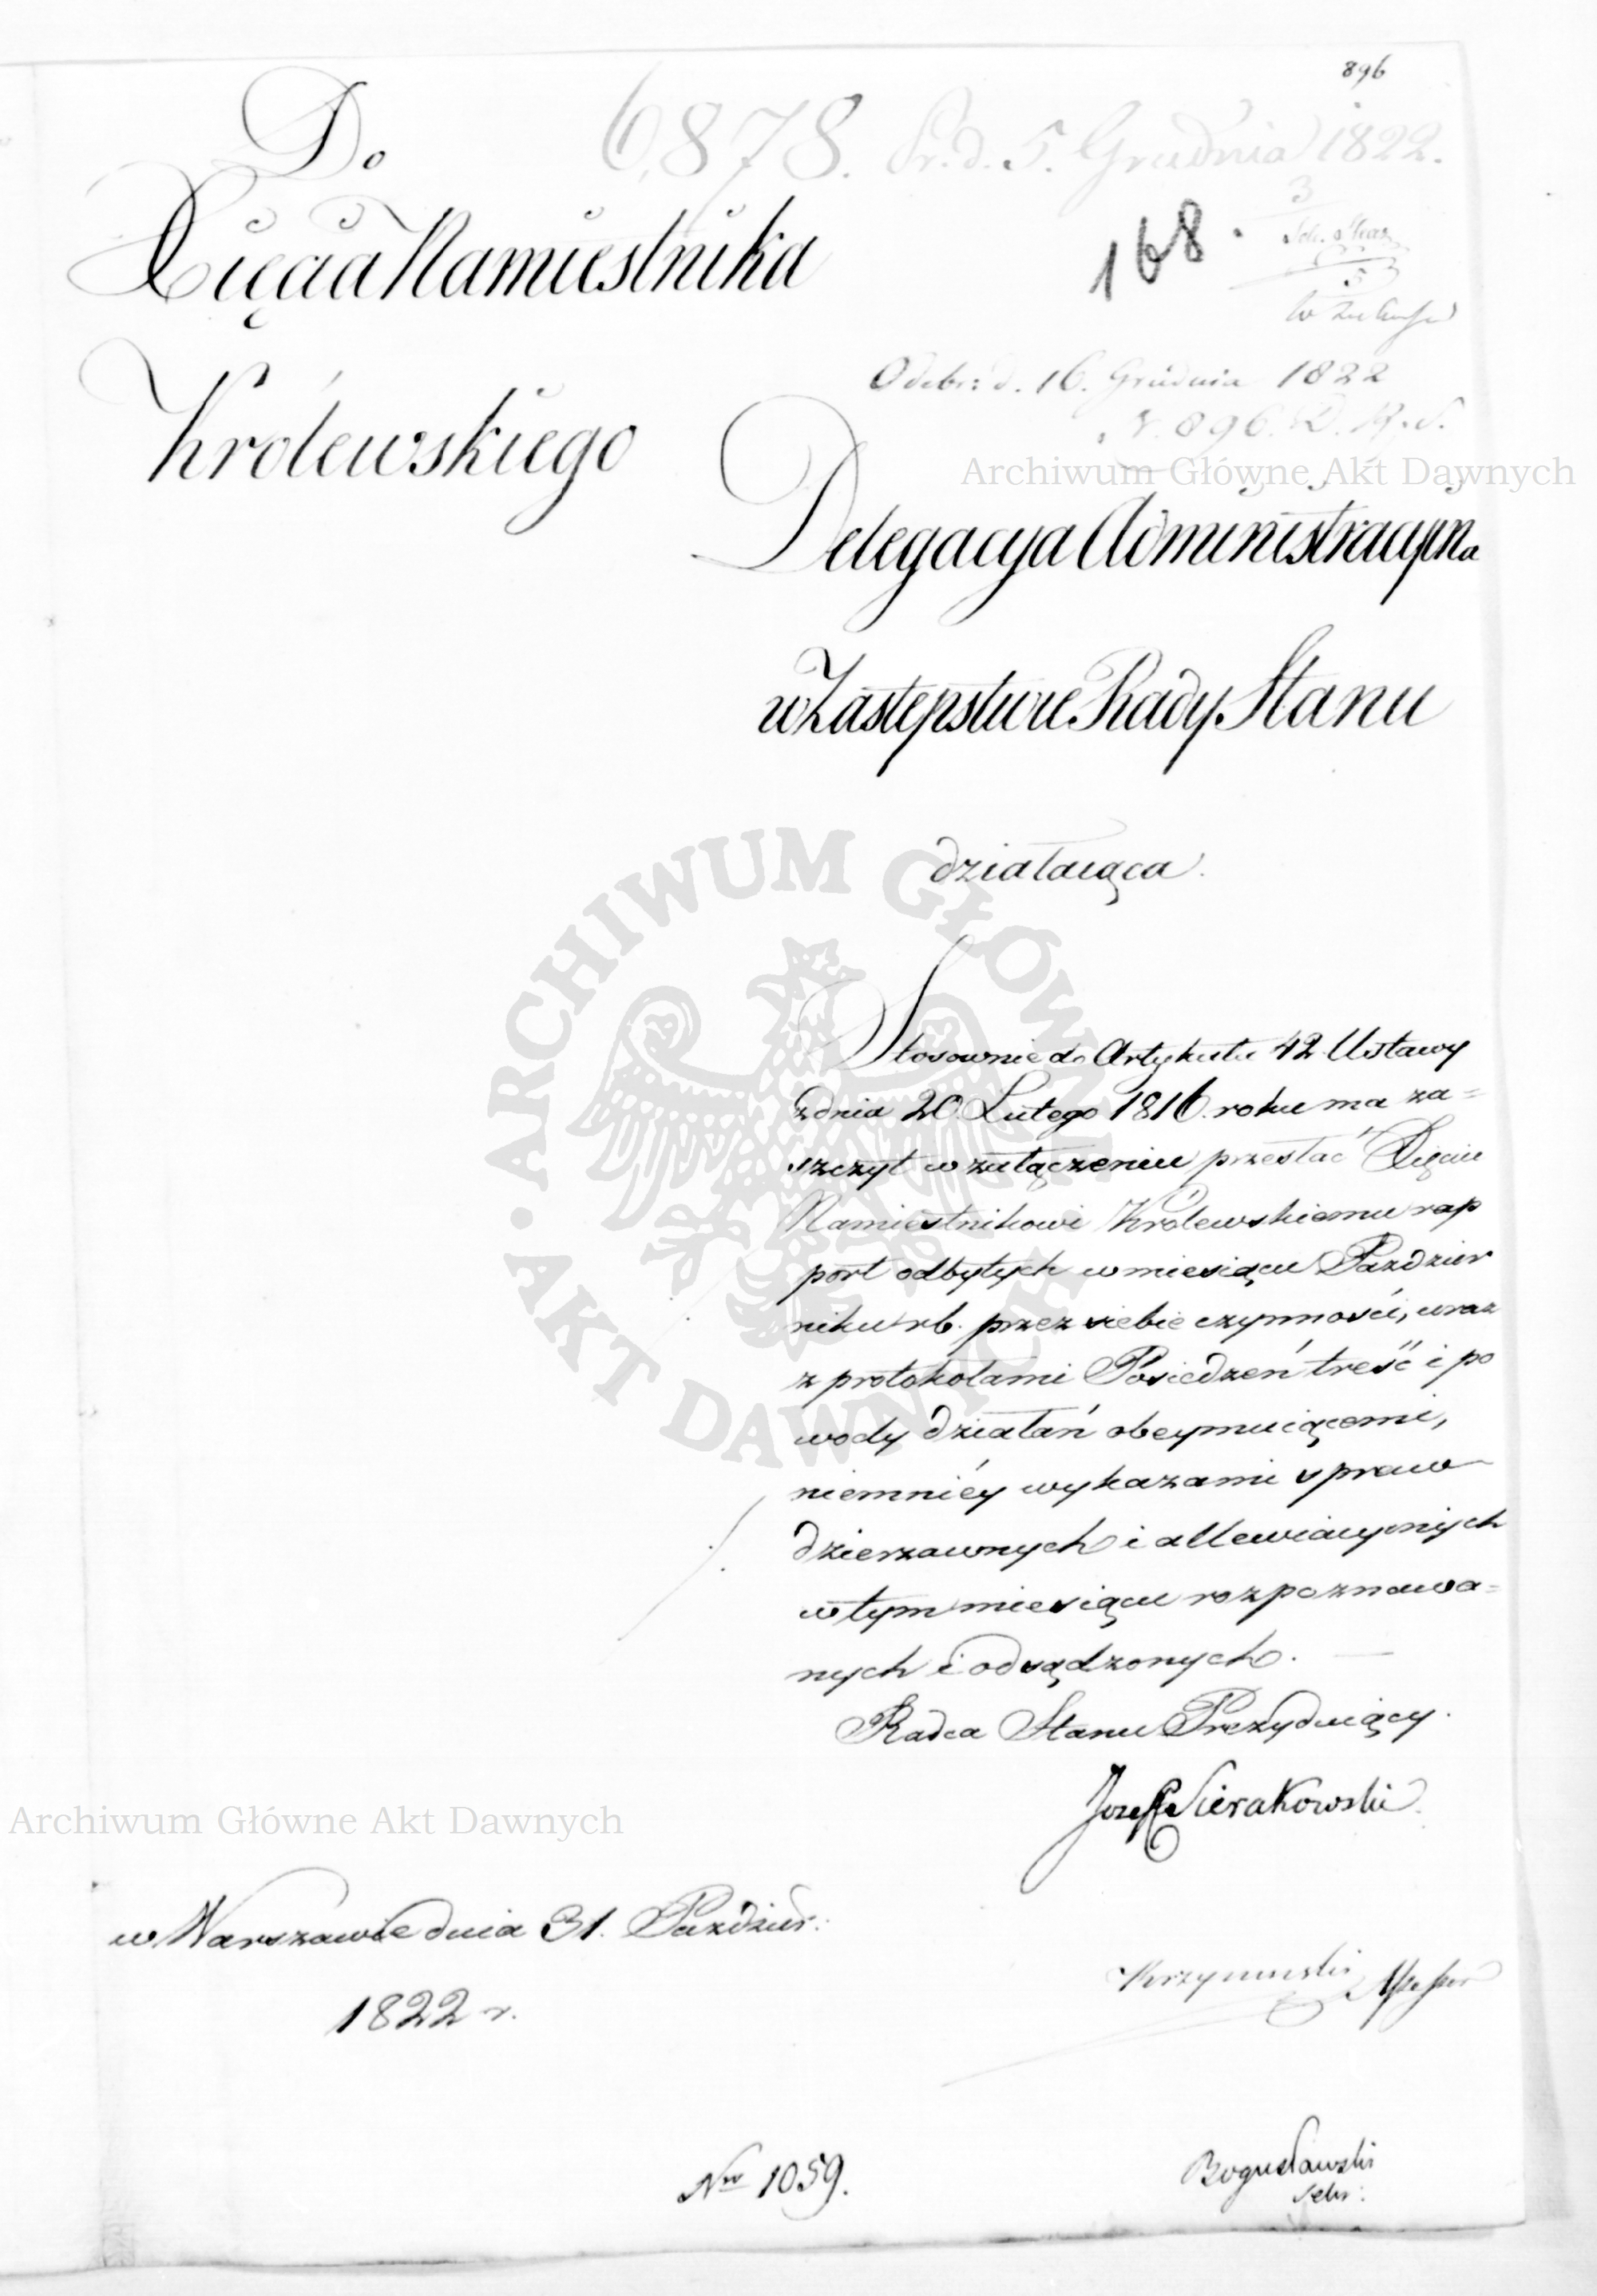 896
Do
6,878. Pr. d. 5. Grudnia 1822.
Xięcia Namiestnika
168.
3
5
Królewskiego
Odebr: d. 16. Grudnia 1822
N. 896. D. R. S.
Archiwum Główne Akt Dawnych
Delegacya Administracyina
w Zastępstwie Rady Stanu
działaiąca.
ARCHIWUM GŁÓWNE · AKT DAWNYCH ·
Stosownie do Artykułu 42 Ustawy
z dnia 20. Lutego 1816. roku ma za=
szczyt w załączeniu przesłać Xięciu
Namiestnikowi Królewskiemu rap
port odbytych w miesiącu Paździer
niku rb. przez siebie czynności, wraz
z protokołami Posiedzeń treść i po
wody działań obeymuiącemi,
niemniéy wykazami spraw
dzierzawnych i allewiacyinych
w tym miesiącu rozpoznawa=
nych i odsądzonych. —
Radca Stanu Prezyduiący.
Jozef Sierakowski
Archiwum Główne Akt Dawnych
w Warszawie dnia 31. Paździer:
1822 r.
Krzymuski Assessor
No 1059.
Bogusławski
Sekr: